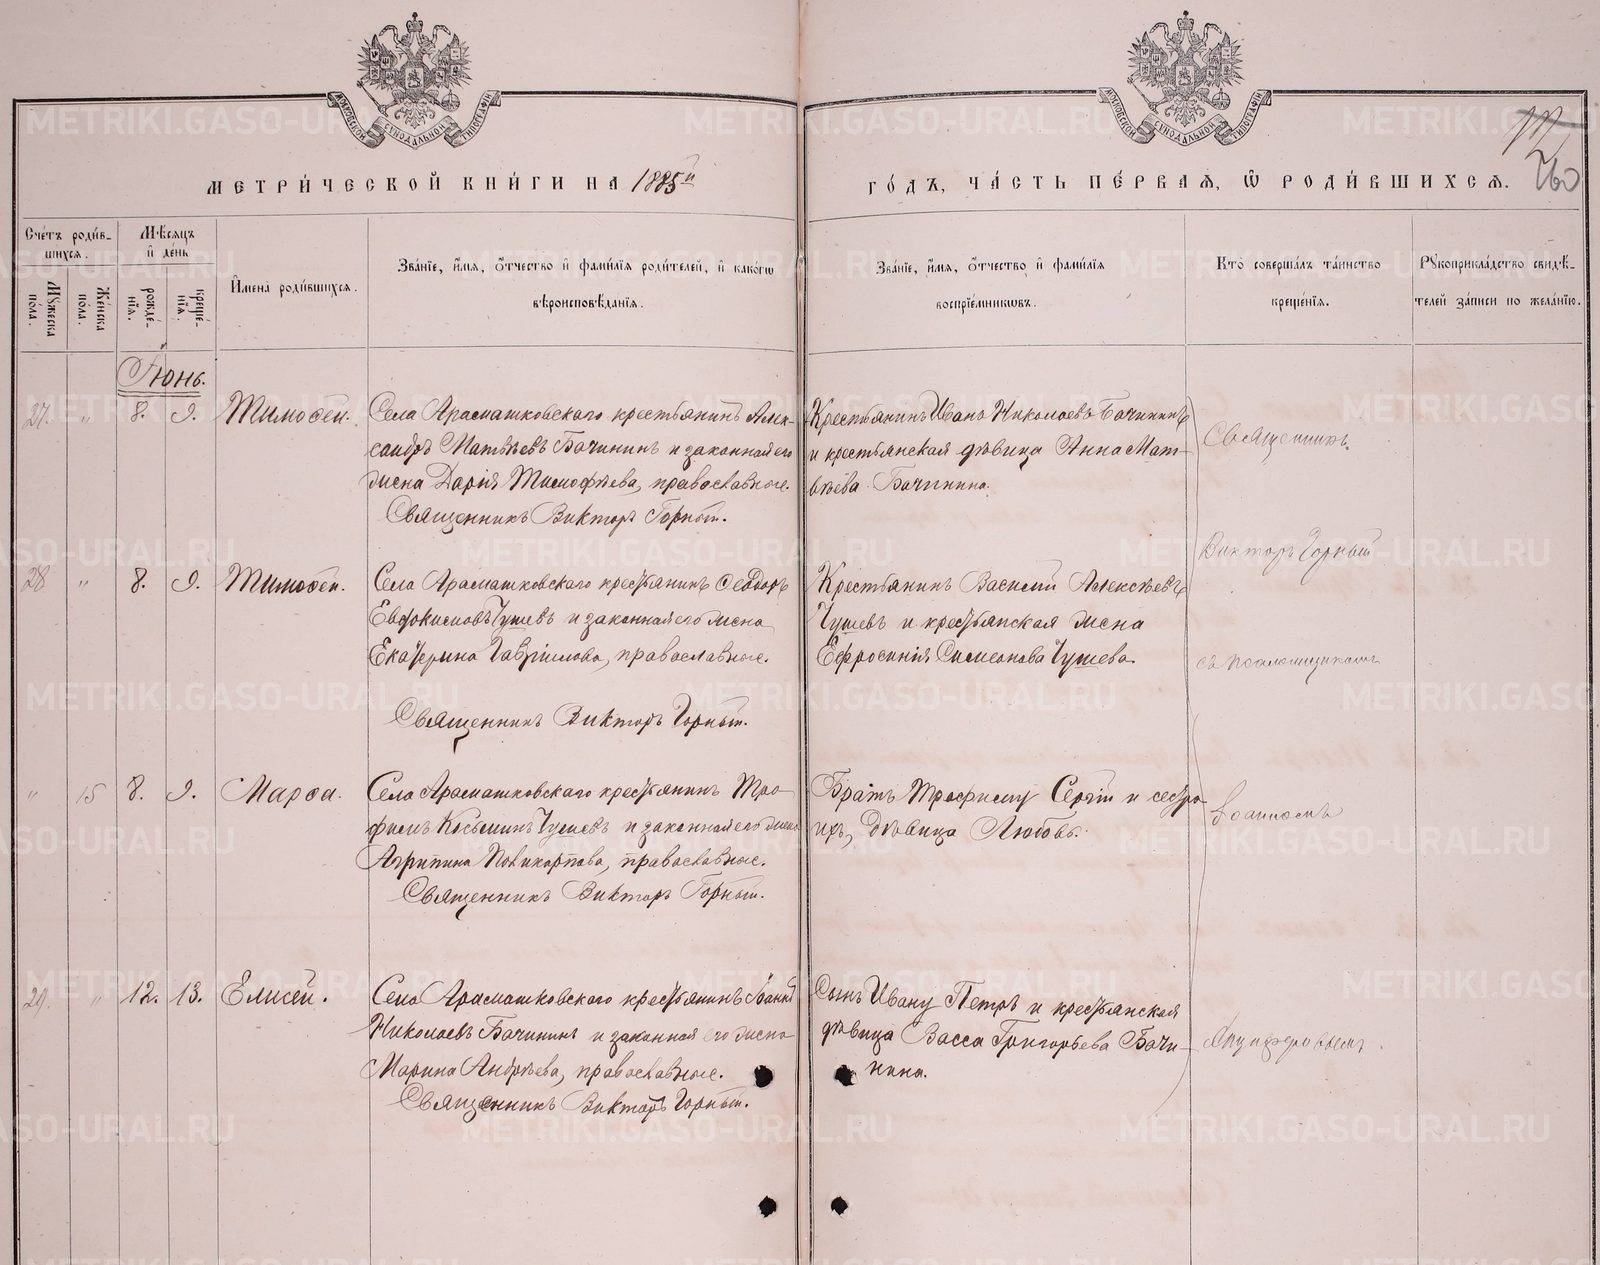 МОСКОВСКОЙ СѴНОДАЛЬНОЙ ТИПОГРАФІИ
МОСКОВСКОЙ СѴНОДАЛЬНОЙ ТИПОГРАФІИ
МЕТРИ́ЧЕСКОЙ КНИ́ГИ НА 1885й
ГО́ДЪ, ЧА́СТЬ ПЕ́РВАѦ, Ѡ РОДИ́ВШИХСѦ.
260
Сче́тъ роди́в-
шихсѧ.
Мꙋжеска по́ла.
Же́нска по́ла.
Мѣ́сѧцъ и де́нь
рожде́нїѧ.
креще́нїѧ.
И҆мена̀ роди́вшихсѧ.
Зва́нїе, и҆́мѧ, ѻ҆́тчество и҆ фами́лїѧ роди́телей, и҆ како́гѡ
вѣроисповѣ́данїѧ.
Зва́нїе, и҆́мѧ, ѻ҆́тчество и҆ фами́лїѧ
воспрїе́мникѡвъ.
Кто̀ соверша́лъ та́инство
креще́нїѧ.
Рꙋкоприкла́дство свидѣ́-
телей за́писи по жела́нїю.
Іюнь.
27. " 8. 9. Тимоѳей. Села Арамашковскаго крестьянинъ Алек-
сандръ Матвѣевъ Бачининъ и законная его
жена Дарія Тимофѣева, православные.
Священникъ Викторъ Горный.
Крестьянинъ Иванъ Николаевъ Бачининъ
и крестьянская дѣвица Анна Мат-
вѣева Бачинина.
Священникъ
Викторъ Горный
28 " 8. 9. Тимоѳей. Села Арамашковскаго крестьянинъ Ѳеодоръ
Евдокимовъ Чушевъ и законная его жена
Екатерина Гавріилова, православные.
Священникъ Викторъ Горный.
Крестьянинъ Василій Алексѣевъ
Чушевъ и крестьянская жена
Ефросинія Симеонова Чушева.
съ псаломщикомъ
" 15 8. 9. Марѳа. Села Арамашковскаго крестьянинъ Тро-
фимъ Косьминъ Чушевъ и законная его жена
Агрипина Поликарпова, православные.
Священникъ Викторъ Горный.
Братъ Трофиму Сергій и сестра
ихъ, дѣвица Любовь.
Іоанномъ
29. " 12. 13. Елисей. Села Арамашковскаго крестьянинъ Іоаннъ
Николаевъ Бачининъ и законная его жена
Марина Андрѣева, православные.
Священникъ Викторъ Горный.
Сынъ Ивану Петръ и крестьянская
дѣвица Васса Григорьева Бачи-
нина.
METRIKI.GASO-URAL.RU